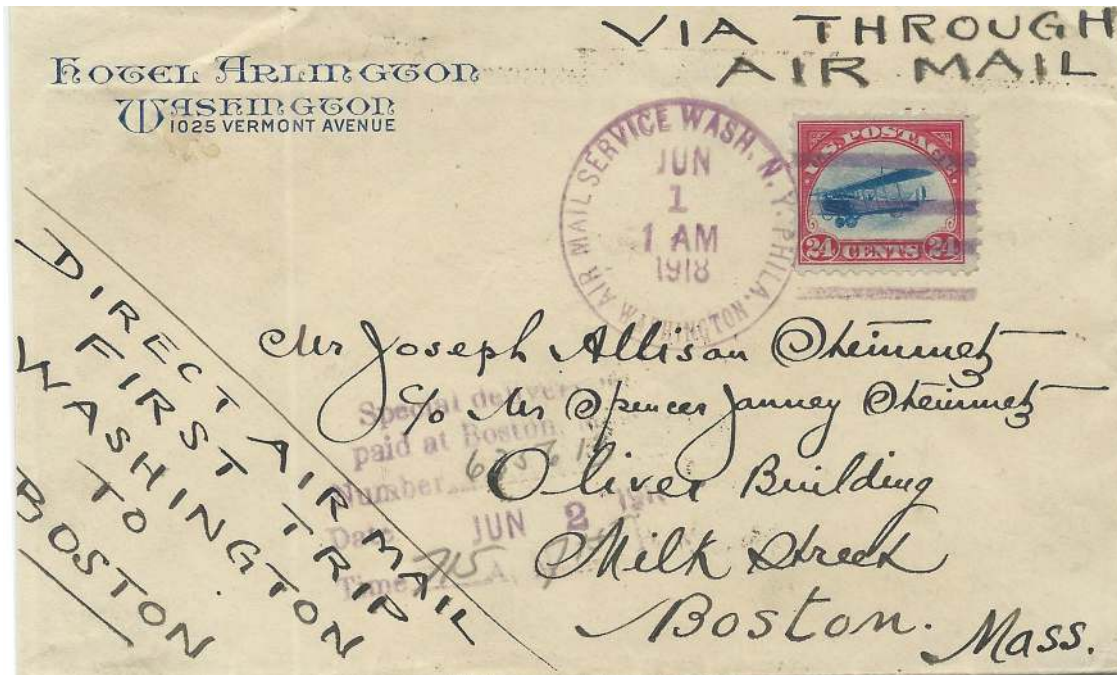 VIA THROUGH
AIR MAIL
HOTEL ARLINGTON
WASHINGTON
1025 VERMONT AVENUE
AIR MAIL SERVICE WASH. N.Y. PHILA.
JUN
1
1 AM
1918
WASHINGTON.
U.S. POSTAGE
24 CENTS 24
DIRECT AIR MAIL
FIRST TRIP
WASHINGTON
TO
BOSTON
Mr Joseph Allison Steinmetz
c/o Mr Spencer Janney Steinmetz
Oliver Building
Milk Street
Boston. Mass.
Special delivery
paid at Boston,
Number
Date JUN 2
Time 715